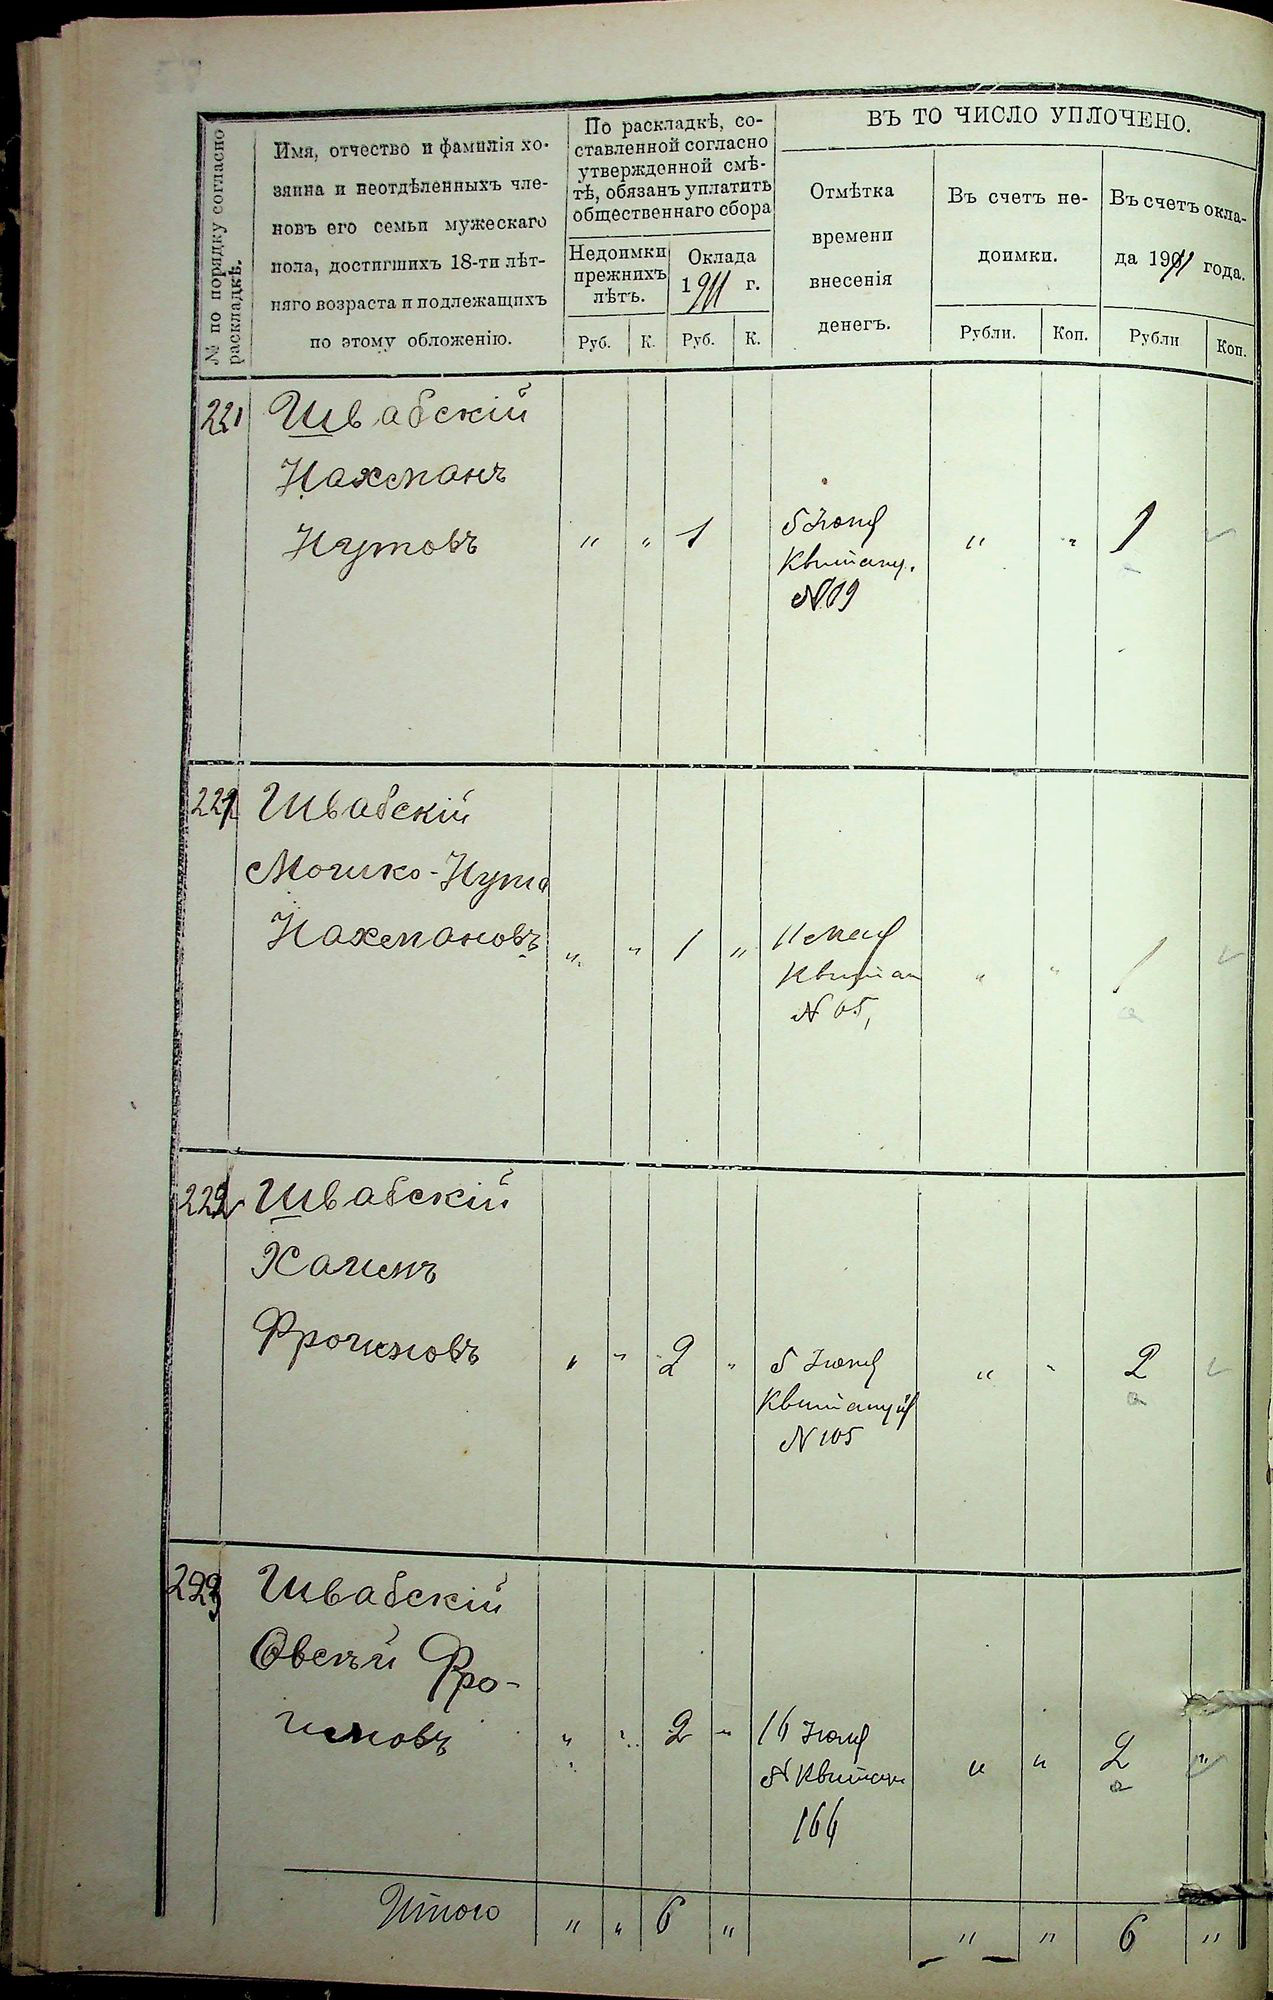 № по порядку согласно
раскладкѣ.
Имя, отчество и фамилія хо-
зяина и неотдѣленныхъ чле-
новъ его семьи мужескаго
пола, достигшихъ 18-ти лѣт-
няго возраста и подлежащихъ
по этому обложенію.
По раскладкѣ, со-
ставленной согласно
утвержденной смѣ-
тѣ, обязанъ уплатить
общественнаго сбора
Недоимки
прежнихъ
лѣтъ.
Оклада
1911 г.
Руб. К. Руб. К.
ВЪ ТО ЧИСЛО УПЛОЧЕНО.
Отмѣтка
времени
внесенія
денегъ.
Въ счетъ не-
доимки.
Въ счетъ окла-
да 1911 года.
Рубли. Коп. Рубли Коп.
221 Швабскій
Нахманъ
Нутовъ " " 1 " " 1
5 Іюня
Квитанц.
№
Швабскій
Мошко-Нута
Нахмановъ " " 1 " " " 1
11 мая
Квитан
N 65
222 Швабскій
Хаимъ
Фроимовъ " " 2 " " " 2
5 Іюня
Квитанція
N 105
223 Швабскій
Овсѣй Фро-
имовъ " " 2 " " " 2 "
16 Іюня
N Квитан
164
Итого " " 6 " " " 6 "